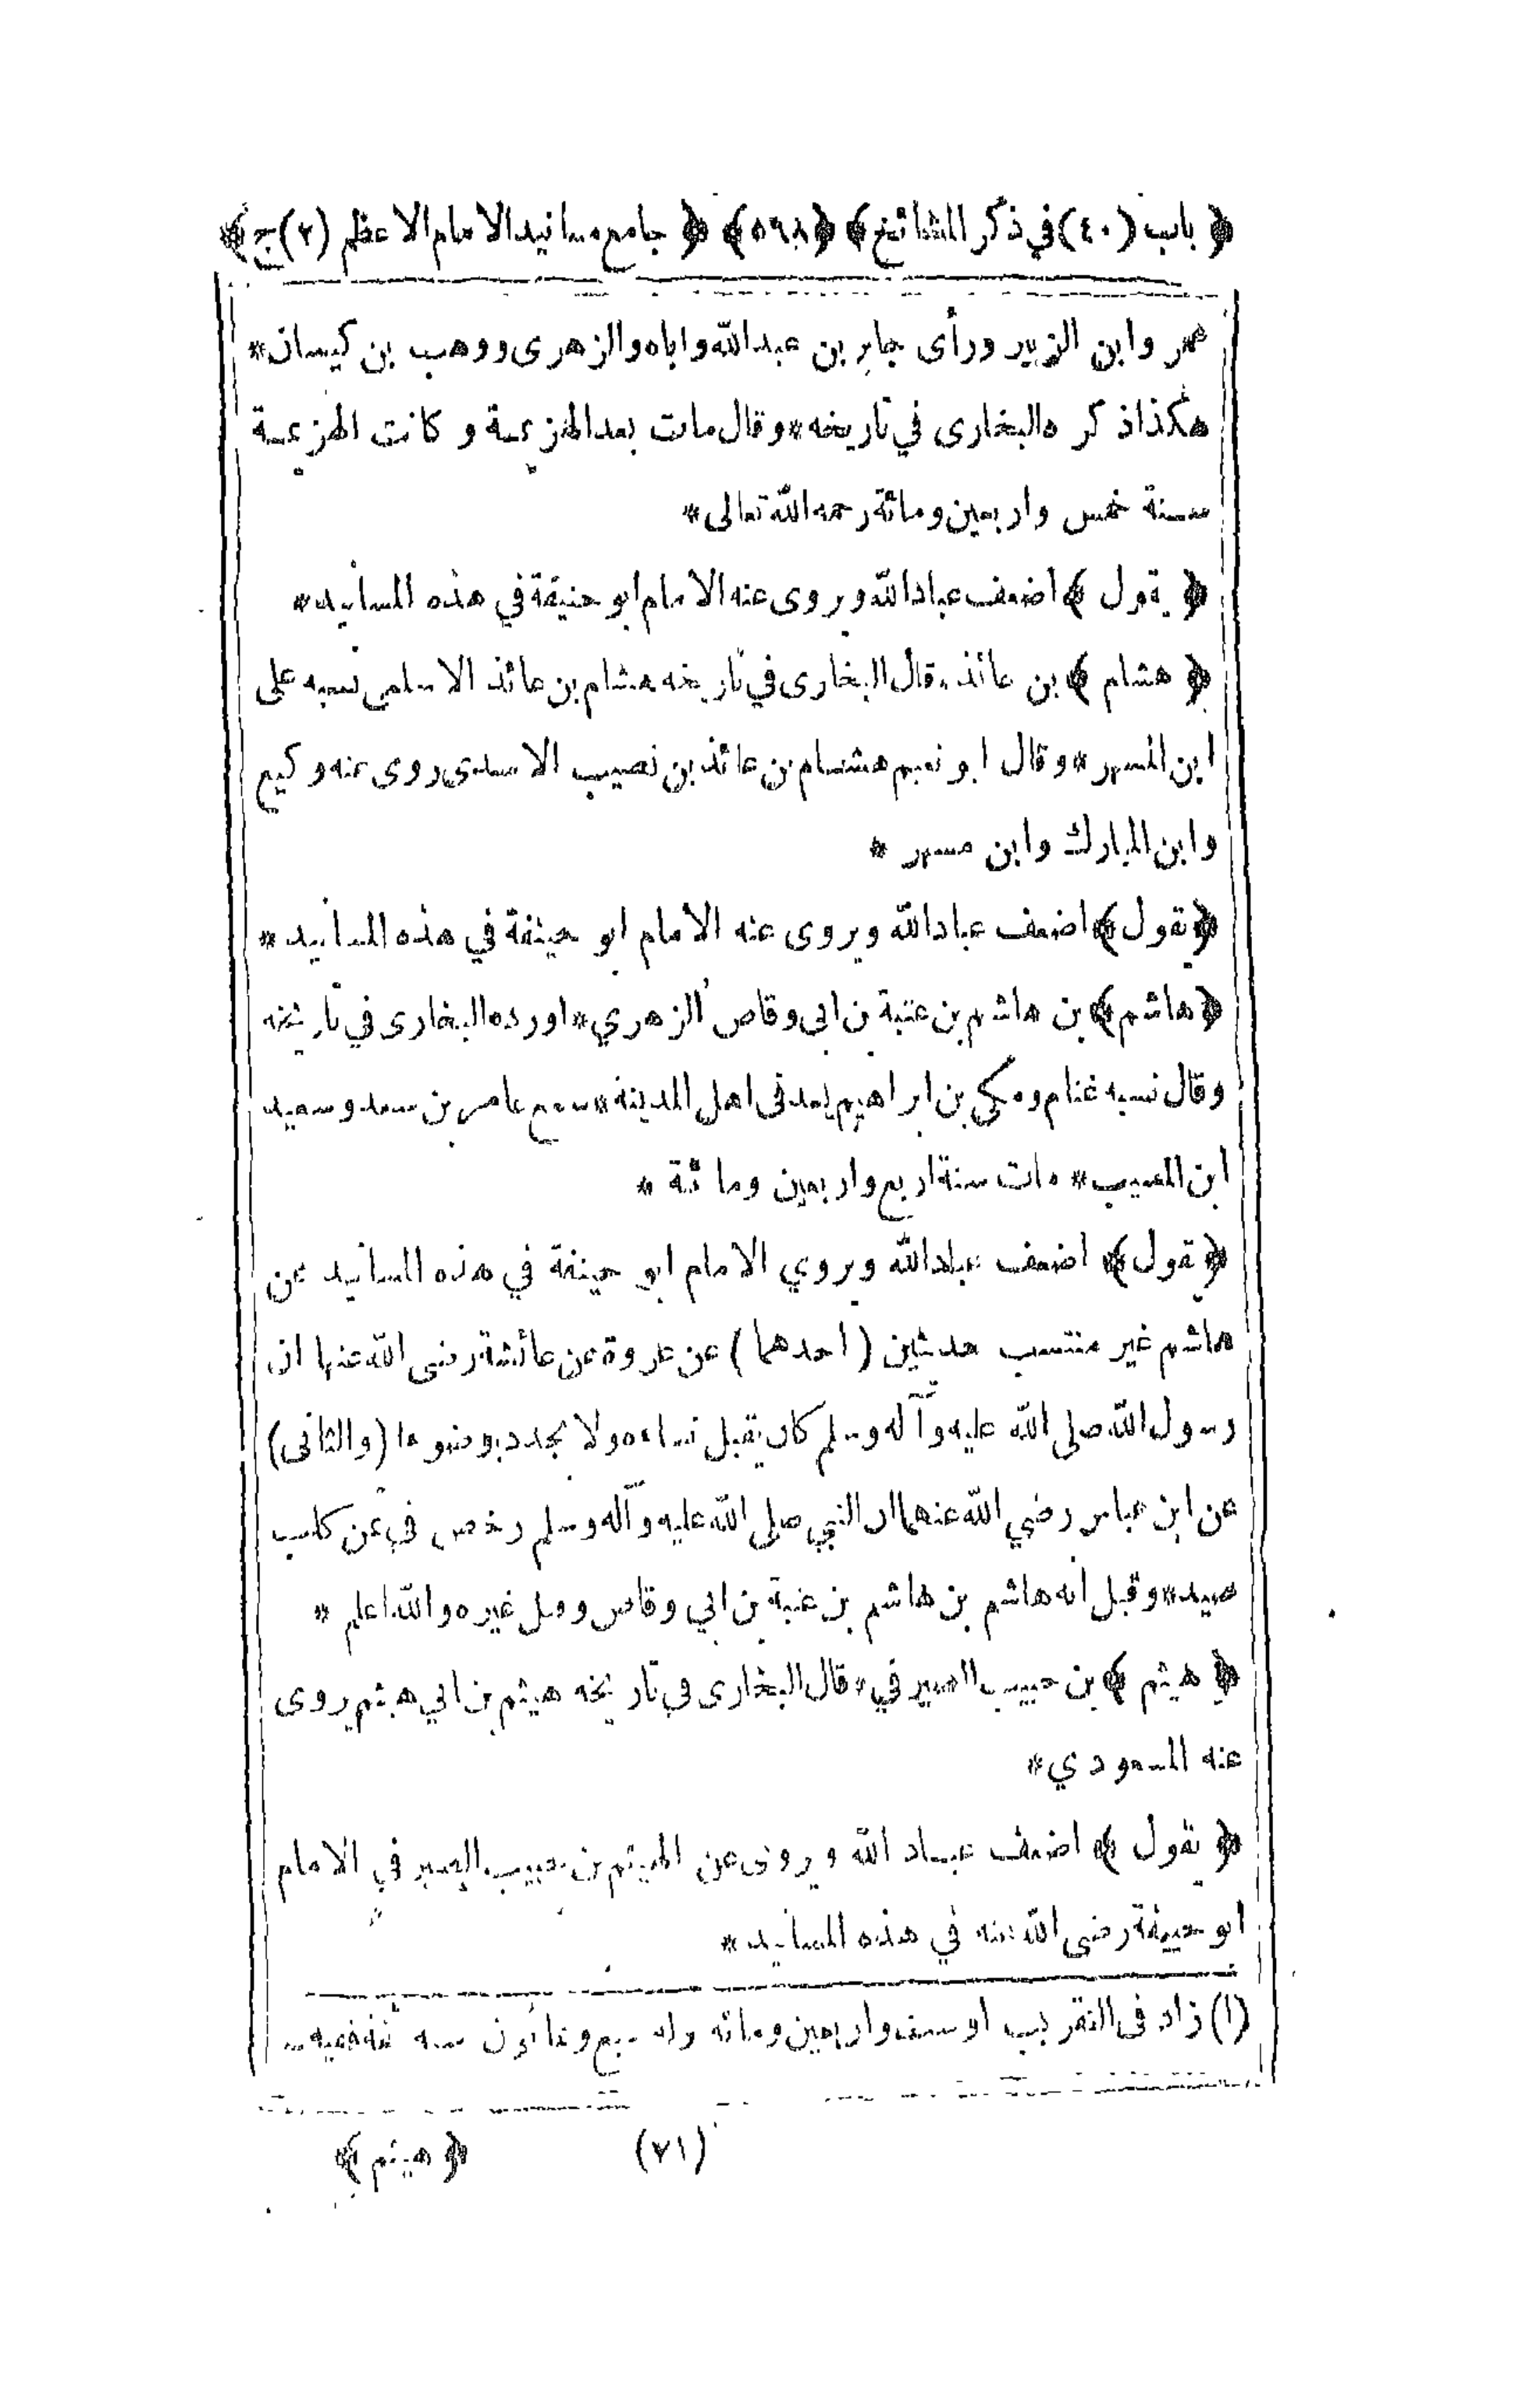 ﴿ باب (٤٠) في ذكر المشائخ ﴾ ﴿ ٥٩٨ ﴾ ﴿ جامع مسانيد الامام الاعظم (٢) ج ﴾
عمر وابن الزبير ورأى جابر بن عبدالله واباه والزهرى ووهب بن كيسان *
هكذا ذكره البخارى في تاريخه * وقال مات بعد الهزيمة وكانت الهزيمة
سنة خمس واربعين ومائة رحمه الله تعالى *
﴿ يقول ﴾ اضعف عباد الله ويروى عنه الامام ابو حنيفة في هذه المسانيد *
﴿ هشام ﴾ بن عائذ * قال البخارى في تاريخه هشام بن عائذ الاسلمى نسبه على
ابن المسهر * وقال ابو نعيم هشام بن عائذ بن نصيب الاسدى روى عنه وكيع
وابن المبارك وابن مسهر *
﴿ يقول ﴾ اضعف عباد الله ويروى عنه الامام ابو حنيفة في هذه المسانيد *
﴿ هاشم ﴾ بن هاشم بن عتبة بن ابى وقاص الزهري * اورده البخارى في تاريخه
وقال نسبه غنام ومكي بن ابراهيم يعد فى اهل المدينة * سمع عامر بن سعد وسعيد
ابن المسيب * مات سنة اربع واربعين ومائة *
﴿ يقول ﴾ اضعف عباد الله ويروي الامام ابو حنيفة في هذه المسانيد عن
هاشم غير منتسب حديثين ( احدهما ) عن عروة عن عائشة رضى الله عنها ان
رسول الله صلى الله عليه وآله وسلم كان يقبل نساءه ولا يجدد وضوءا ( والثانى )
عن ابن عباس رضي الله عنهما ان النبي صلى الله عليه وآله وسلم رخص في ثمن كلب
صيد * وقيل انه هاشم بن هاشم بن عتبة بن ابي وقاص وقيل غيره والله اعلم *
﴿ هيثم ﴾ بن حبيب الصيرفي * قال البخارى في تاريخه هيثم بن ابي هيثم روى
عنه المسعودي *
﴿ يقول ﴾ اضعف عباد الله ويروى عن الهيثم بن حبيب الصيرفي الامام
ابو حنيفة رضى الله عنه في هذه المسانيد *
(١) زاد فى التقريب او ست واربعين ومائه وله سبع وثمانون سنه
(٧١) ﴿ هيثم ﴾